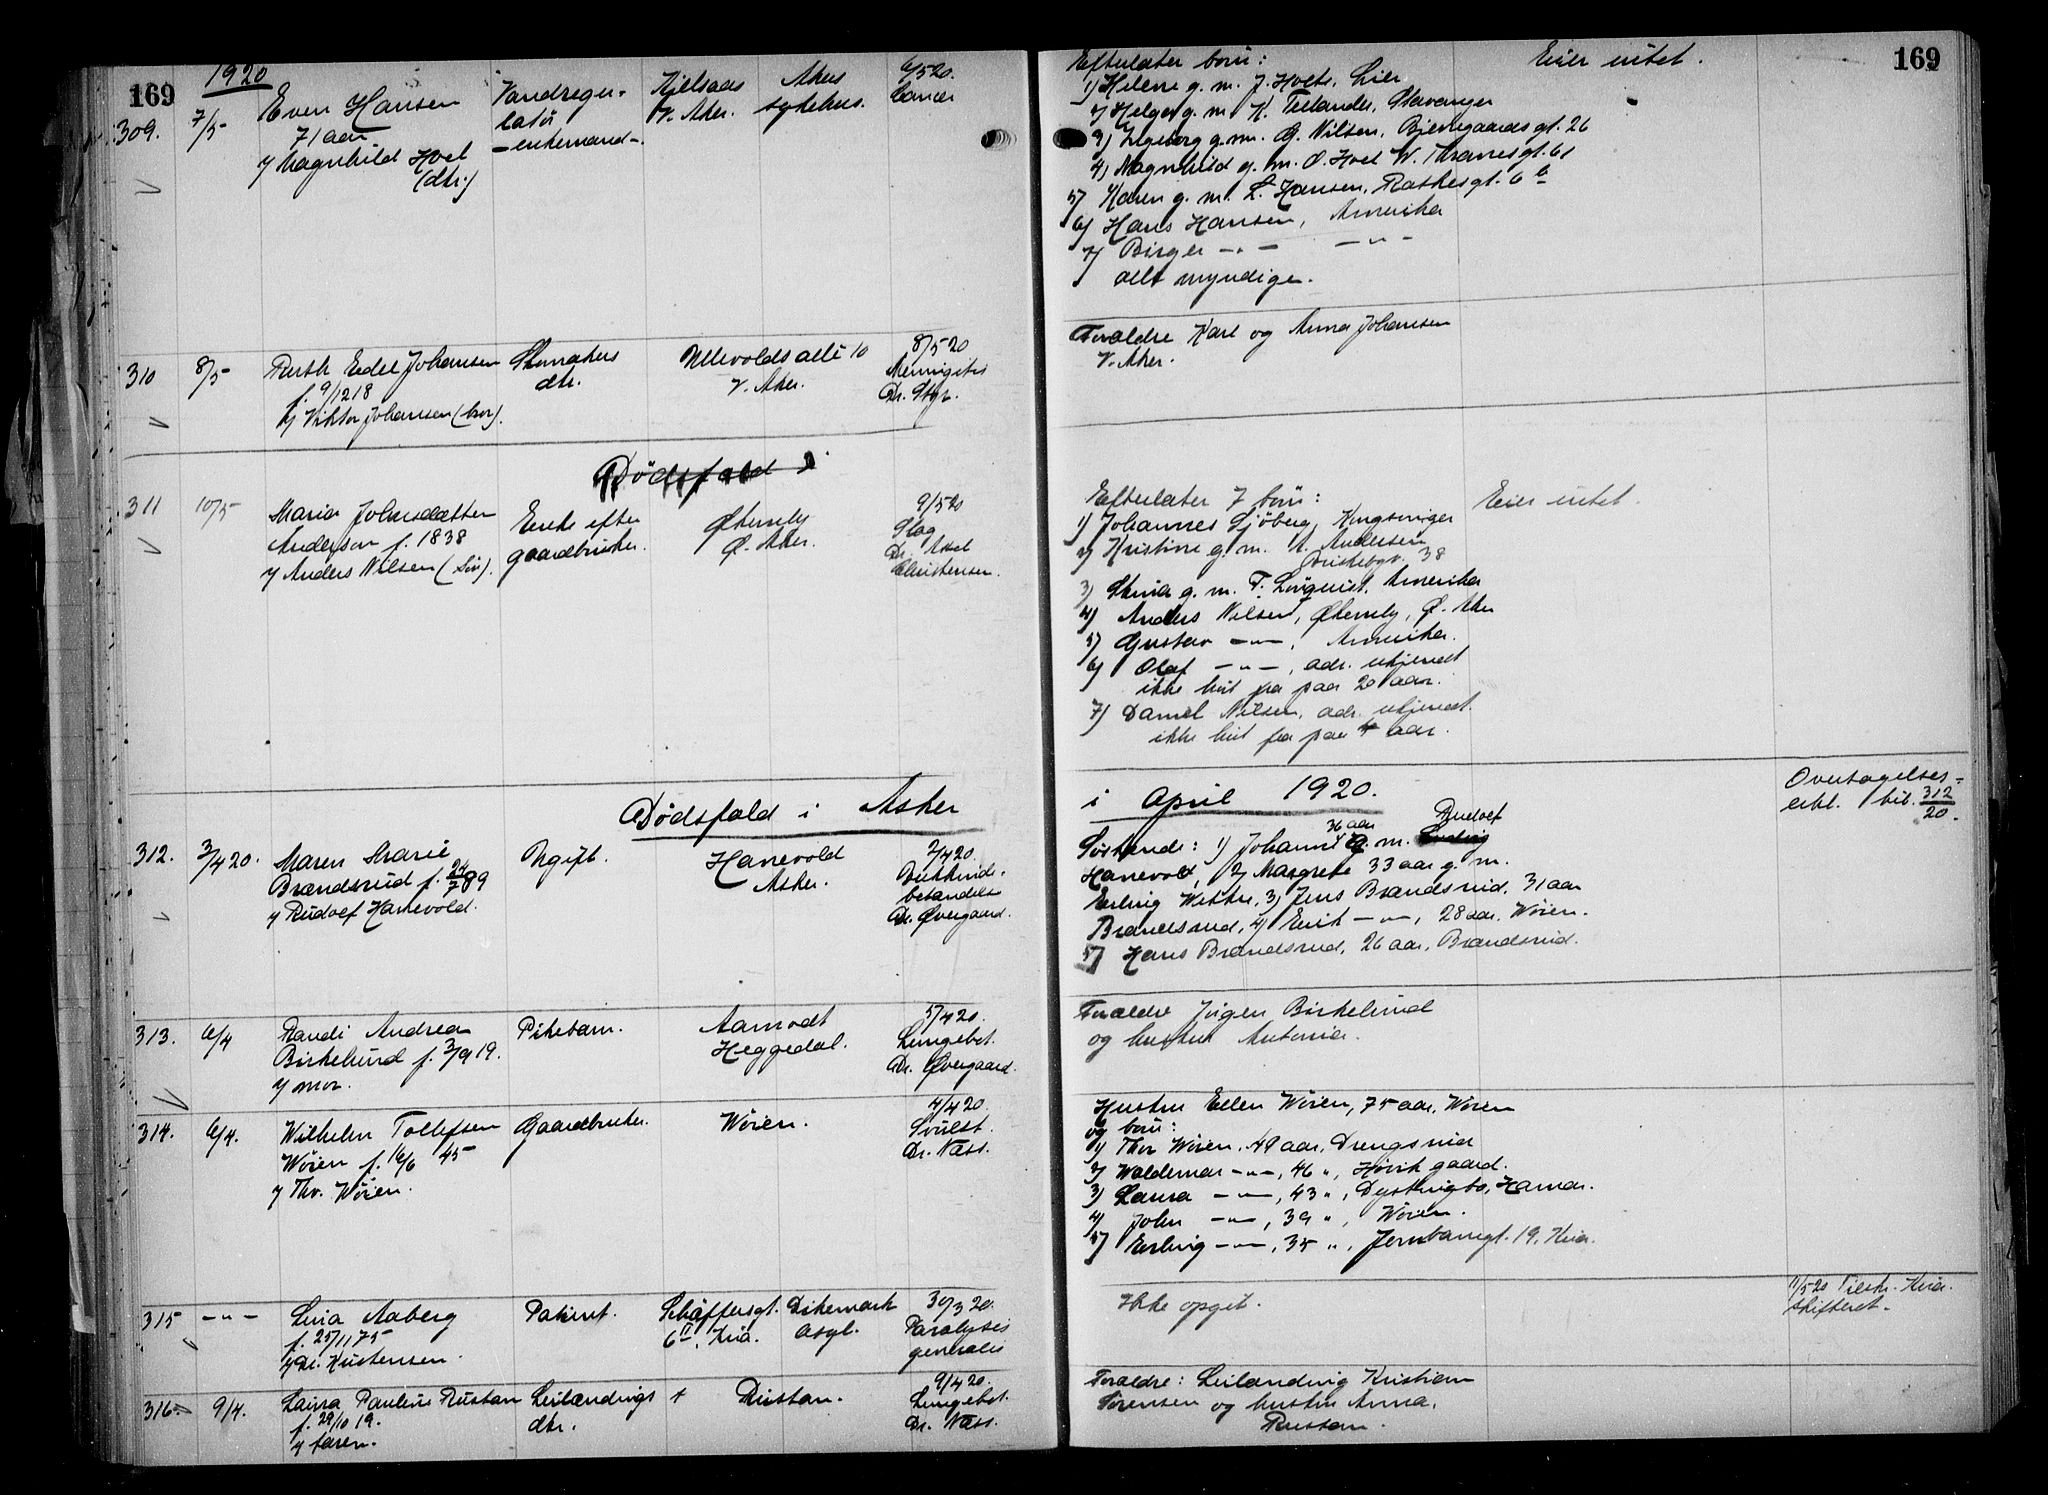 169
1920
309.
7/5
Even Hansen
71 aar
v/ Magnhild Hoel
(dtr.)
Vandregu-
latør
- enkemand -.
Kjelsaas
V. Aker.
Akers
sykehus.
6/5 20.
Cancer
310
8/5
Ruth Edel Johansen
f. 9/12 18
v/ Viktor Johansen (bror).
Skomakers
dtr.
Ullevolds allé 10
V. Aker.
8/5 20
Meningitis
Dødsfald i
311
10/5
Maria Johnsdatter
Anderson f. 1838
v/ Anders Nilsen (søn).
Enke efter
gaardbruker.
Økernby
Ø. Aker.
9/5 20
Slag
Dr. Axel
Christensen.
Dødsfald i Asker
312.
3/4 20.
Maren Marie
Brændsrud f. 24/7 89
v/ Rudolf Hanevold.
Ugift.
Hanevold
Asker.
2/4 20.
Bukhinde-
betændelse
Dr. Øvergaard.
313.
6/4
Randi Andrea
Birkelund f. 3/9 19.
v/ mor.
Pikebarn.
Aamodt
Heggedal.
5/4 20.
Lungebet.
Dr. Øvergaard.
314.
6/4.
Wilhelm Tollefsen
Wøien f. 16/6 45
v/ Thv. Wøien.
Gaardbruker.
Wøien.
4/4 20.
Svulst.
Dr. Næss.
315
- " -
Lina Aaberg
f. 25/11 75
v/ Dr. Kristensen.
Patient.
Schäffersgt.
6 II, Kria.
Dikemark
asyl.
30/3 20.
Paralysis
generalis
316.
9/4.
Laura Pauline Rustan
f. 29/10 19.
v/ faren.
Leilændings
dtr.
Rustan.
9/4 20.
Lungebet.
Dr. Næss.
169
Efterlater børn:
Eier intet.
1) Helene g. m. J. Holts, Lier
2) Helga g. m. K. Teilander, Stavanger
3) Ingeborg g. m. G. Nilsen, Bjerregaards gt. 26
4) Magnhild g. m. O. Hoel W. Thranesgt. 61
5) Karen g. m. L. Hansen, Rathkesgt. 6 b
6) Hans Hansen, Amerika
7) Birger - " - - " -
alle myndige.
Forældre Karl og Anna Johansen
V. Aker.
Efterlater 7 børn:
Eier intet.
1) Johannes Sjøberg, Kongsvinger
2) Kristine g. m. A. Andersen
38
3) Stina g. m. F. Lønquist, Amerika
4) Anders Nilsen, Økernby, Ø. Aker
5) Gustav - " -, Amerika.
6) Olaf - " -, adr. ukjendt
ikke hørt fra paa 20 aar.
7) Daniel Nilsen, adr. ukjendt.
ikke hørt fra paa 4 aar.
i April 1920.
Overtagelses-
erkl. bil. 312/20.
Søskende: 1) Johanne 36 aar g. m. Rudolf
Hanevold, 2) Margrete 33 aar g. m.
Erling Wettre, 3) Jens Brændsrud, 31 aar
Brændsrud, 4) Enok - " -, 28 aar, Wøien.
5) Hans Brændsrud, 26 aar, Brændsrud.
Forældre Jørgen Birkelund
og hustru Antonia.
Hustru Ellen Wøien, 75 aar, Wøien
og børn:
1) Thor Wøien, 49 aar, Drengsrud
2) Waldemar - " -, 46 ", Høvik gaard.
3) Laura - " -, 43 ", Dystingbo, Hamar.
4) John - " -, 39 ", Wøien.
5) Erling - " -, 35 ", Jernbanegt. 19, Kria.
Ikke opgit.
11/5 20 Tilskr. Kria.
skifteret.
Forældre: Leilænding Kristian
Sørensen og hustru Anna,
Rustan.